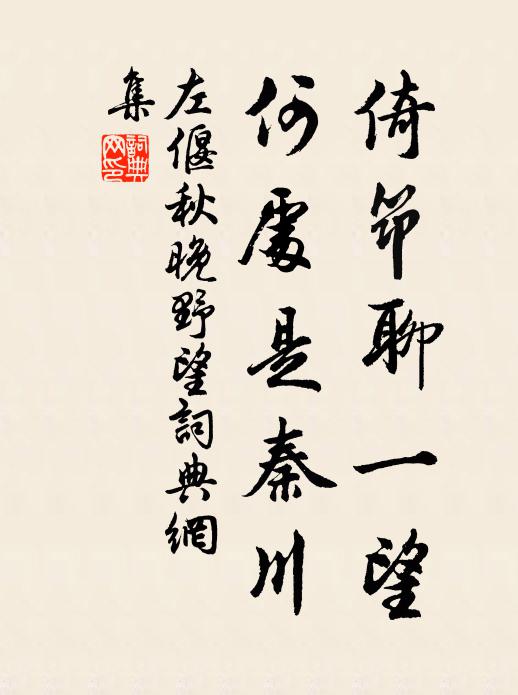 倚筇聊一望
何處是秦川
左偃秋晚野望詞典網
集
詞典
网印